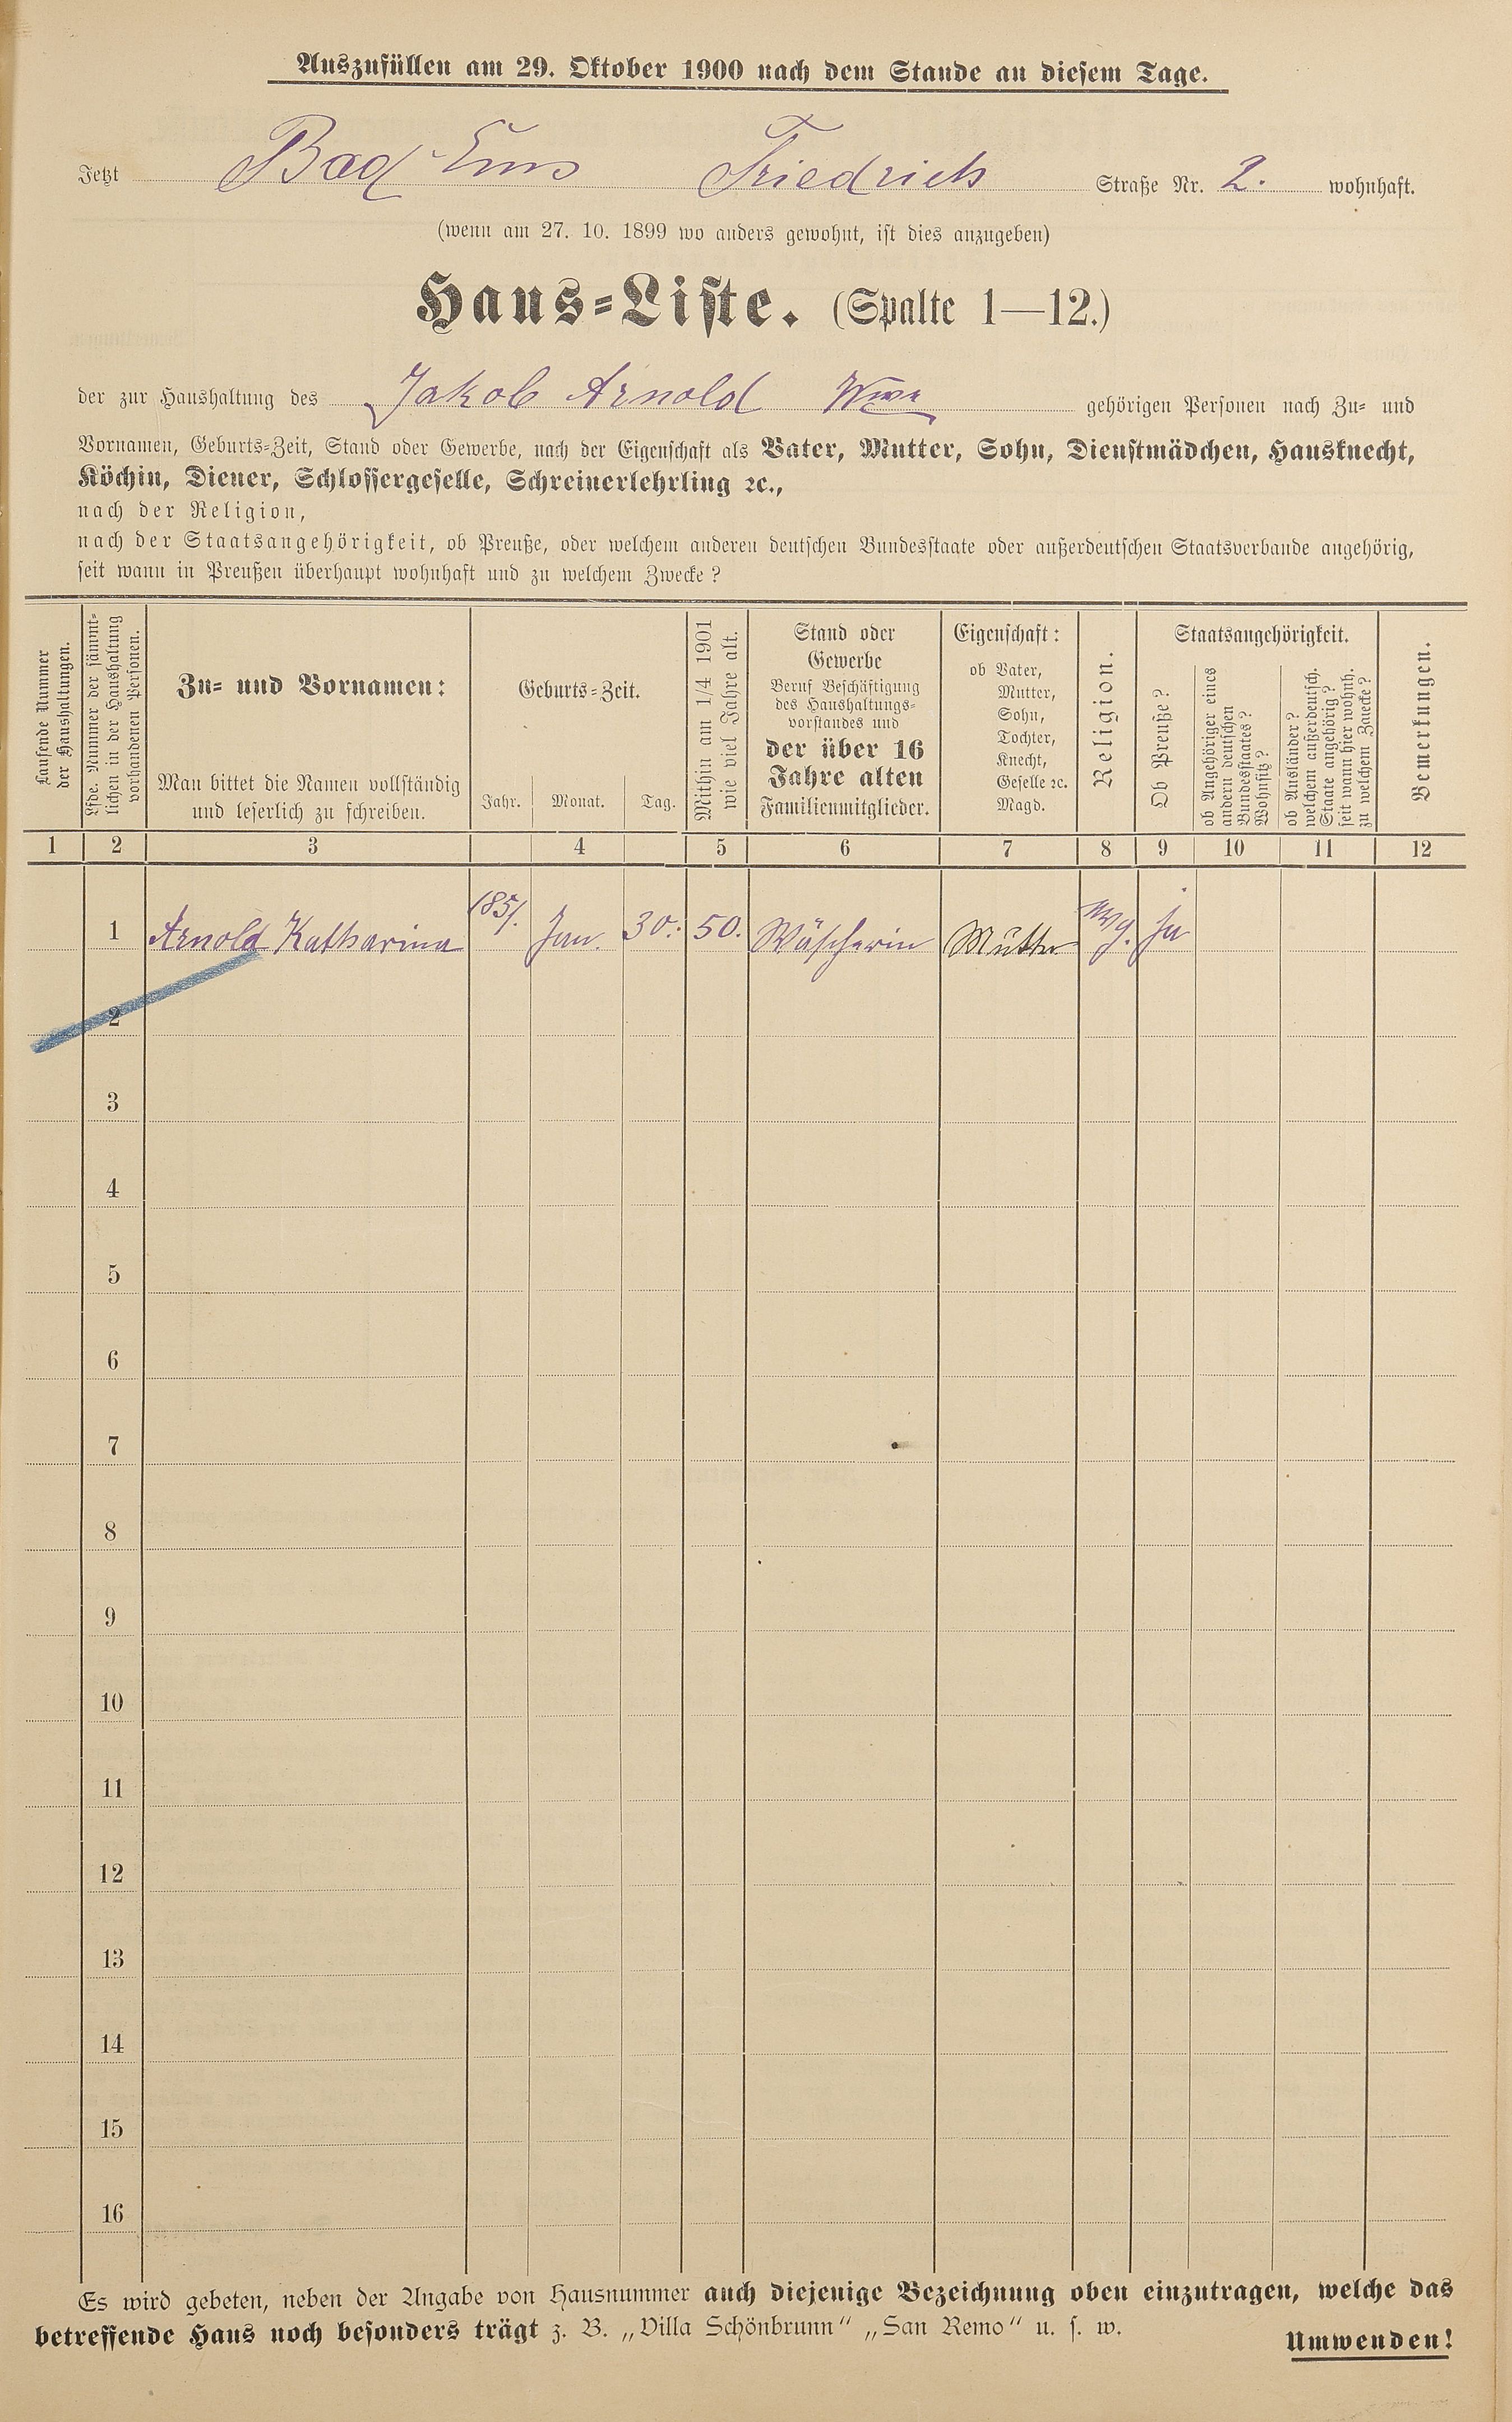 Auszufüllen am 29. Oktober 1900 nach dem Stande an diesem Tage.
Jetzt Bad Ems Friedrich Straße Nr. 2. wohnhaft.
(wenn am 27. 10. 1899 wo anders gewohnt, ist dies anzugeben)
Haus-Liste. (Spalte 1—12.)
der zur Haushaltung des Jakob Arnold Wwe gehörigen Personen nach Zu- und
Vornamen, Geburts-Zeit, Stand oder Gewerbe, nach der Eigenschaft als Vater, Mutter, Sohn, Dienstmädchen, Hausknecht,
Köchin, Diener, Schlossergeselle, Schreinerlehrling ꝛc.,
nach der Religion,
nach der Staatsangehörigkeit, ob Preuße, oder welchem anderen deutschen Bundesstaate oder außerdeutschen Staatsverbande angehörig,
seit wann in Preußen überhaupt wohnhaft und zu welchem Zwecke?
Laufende Nummer
der Haushaltungen.
Lfde. Nummer der sämmt-
lichen in der Haushaltung
vorhandenen Personen.
Zu- und Vornamen:
Man bittet die Namen vollständig
und leserlich zu schreiben.
Geburts-Zeit.
Jahr. Monat. Tag.
Mithin am 1/4 1901
wie viel Jahre alt.
Stand oder
Gewerbe
Beruf Beschäftigung
des Haushaltungs-
vorstandes und
der über 16
Jahre alten
Familienmitglieder.
Eigenschaft:
ob Vater,
Mutter,
Sohn,
Tochter,
Knecht,
Geselle ꝛc.
Magd.
Religion.
Staatsangehörigkeit.
Ob Preuße?
ob Angehöriger eines
andern deutschen
Bundesstaates?
Wohnsitz?
ob Ausländer?
welchem außerdeutsch.
Staate angehörig?
seit wann hier wohnh.
zu welchem Zwecke?
Bemerkungen.
1 2 3 4 5 6 7 8 9 10 11 12
1 Arnold Katharina 1851. Jan. 30. 50. Wäscherin Mutter evg. ja
2
3
4
5
6
7
8
9
10
11
12
13
14
15
16
Es wird gebeten, neben der Angabe von Hausnummer auch diejenige Bezeichnung oben einzutragen, welche das
betreffende Haus noch besonders trägt z. B. „Villa Schönbrunn“ „San Remo“ u. s. w.
Umwenden!